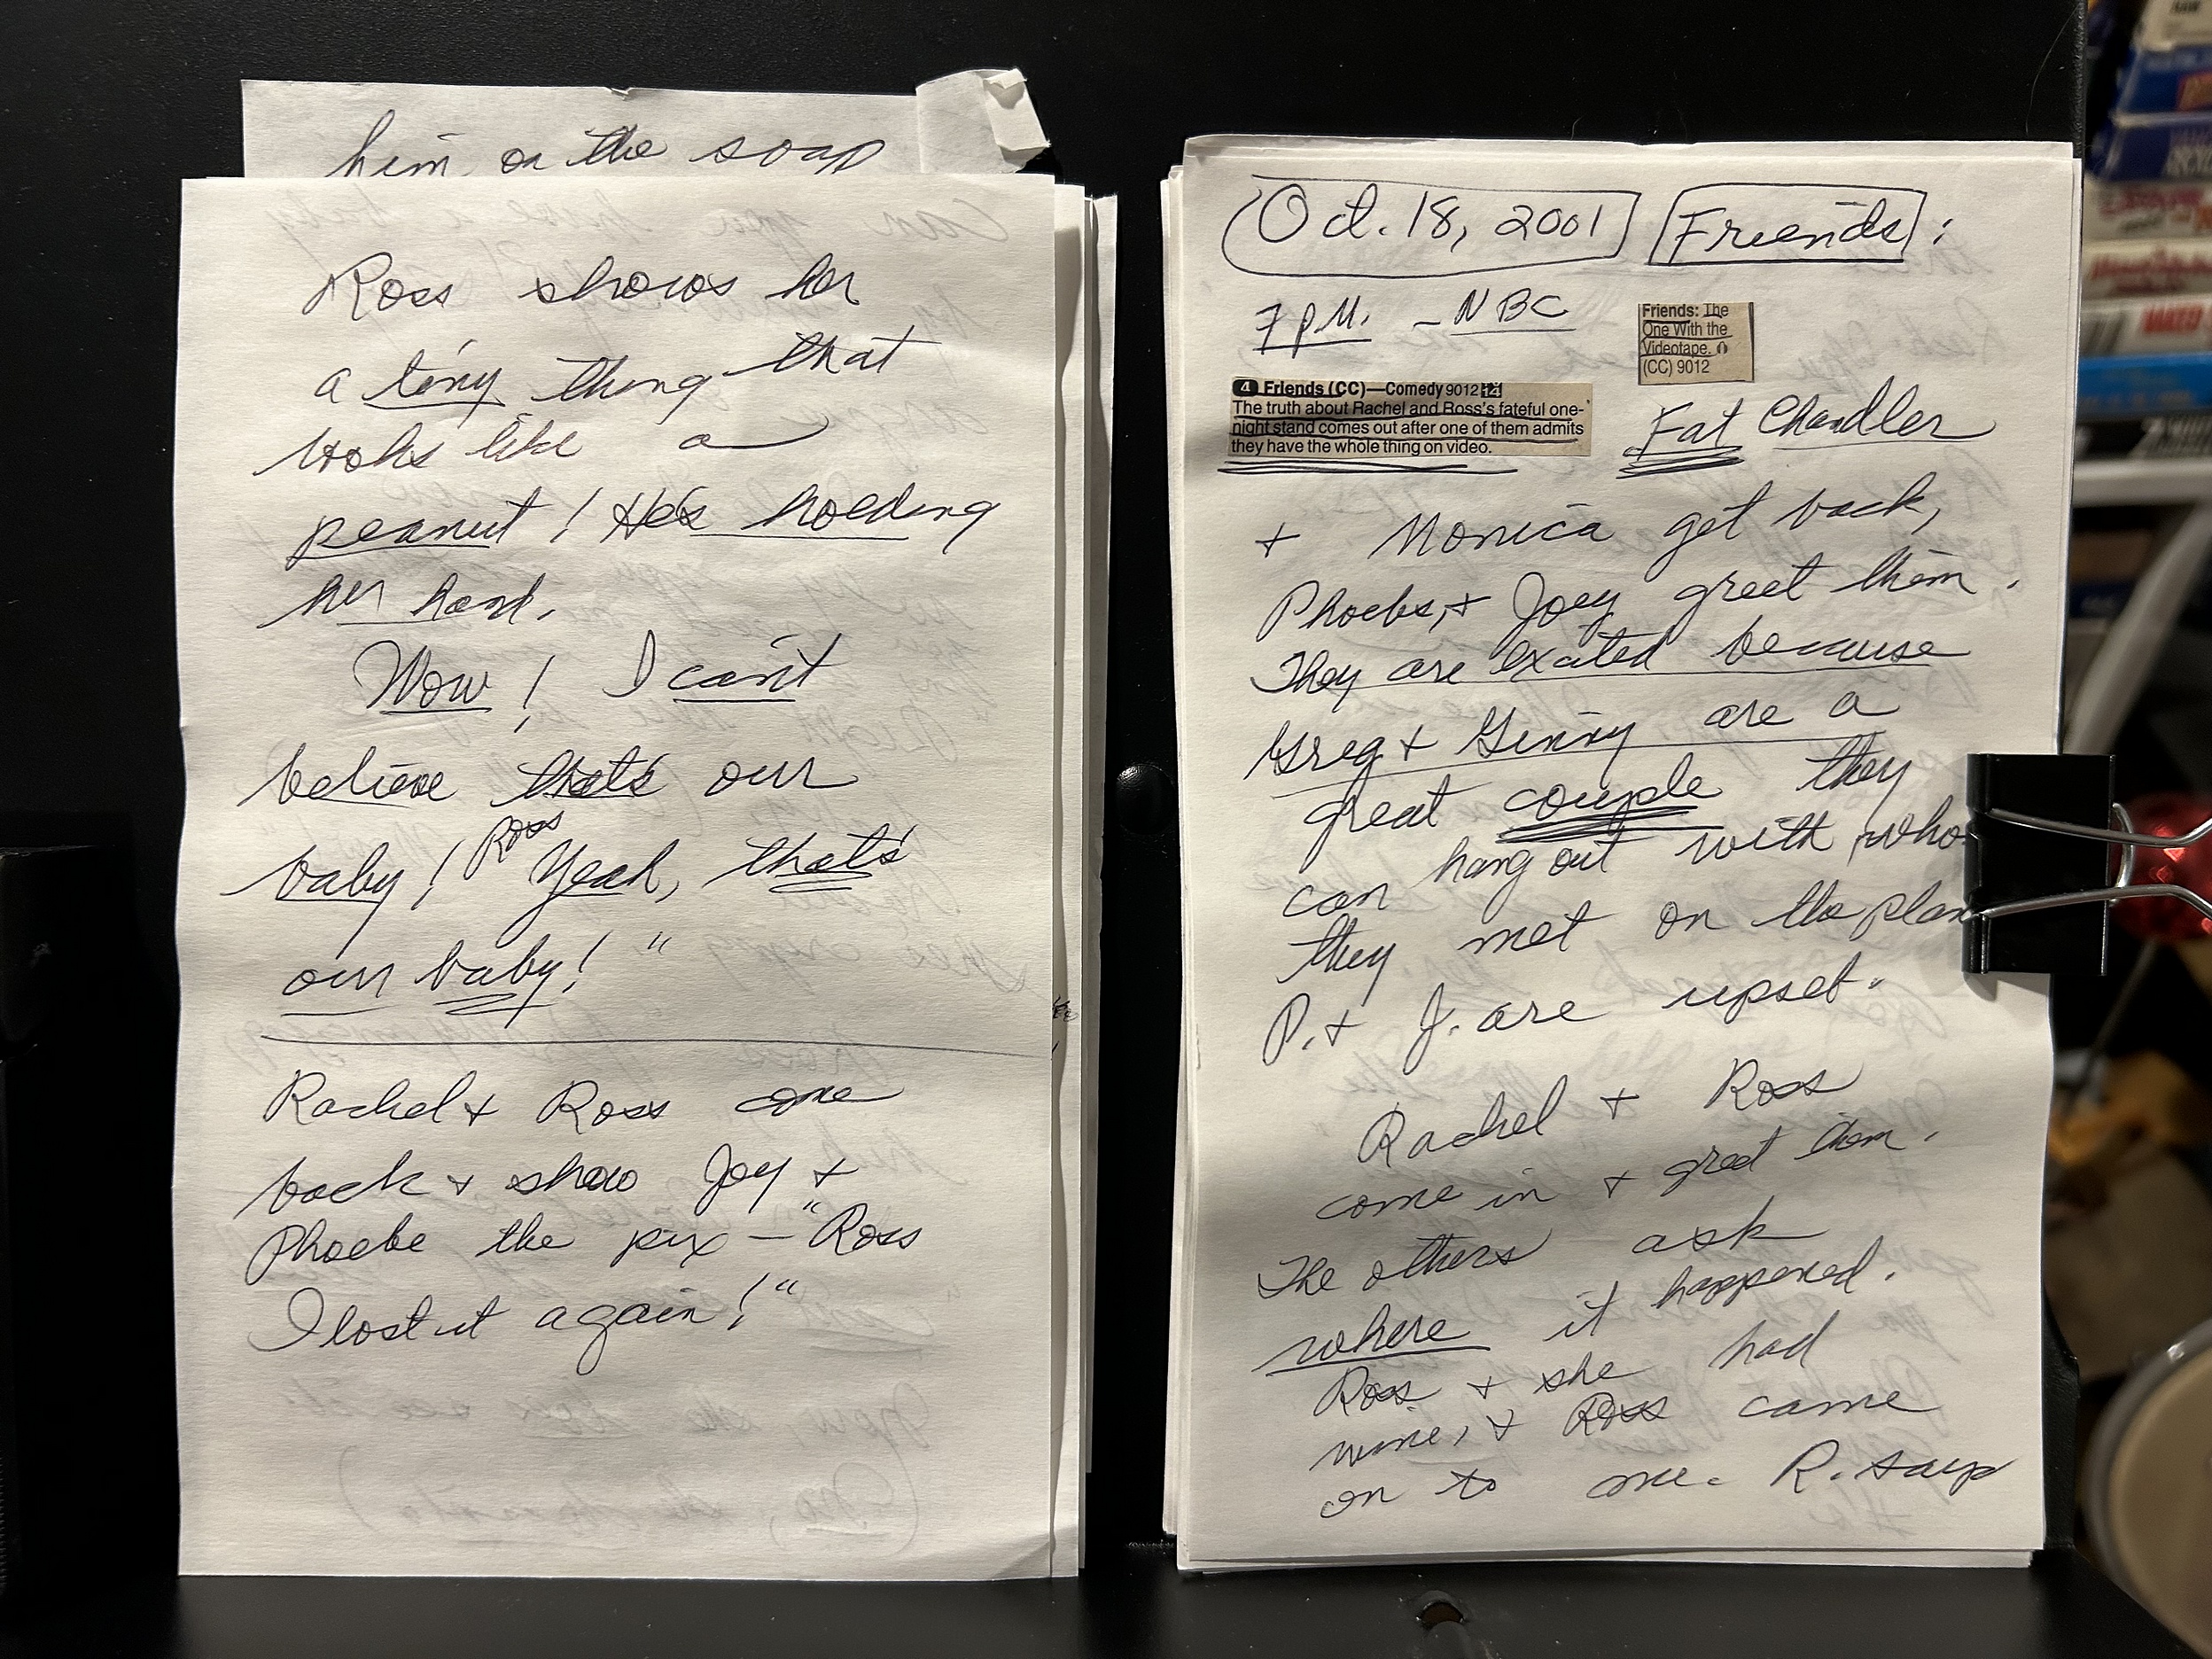 him on the soap
Ross shows her
a tiny thing that
looks like a
peanut! He's holding
her hand.
Wow! I can't
believe that's our
baby! Ross Yeah, that's
our baby!"
Rachel + Ross come
back + show Joy +
Phoebe the pix — "Ross
I lost it again!"
Oct. 18, 2001 Friends:
7 P.M. - NBC
Friends: The
One With the
Videotape.
(CC) 9012
4 Friends (CC)—Comedy 9012 14
The truth about Rachel and Ross's fateful one-
night stand comes out after one of them admits
they have the whole thing on video.
Fat Chandler
+ Monica get back,
Phoebe, + Joey greet them.
They are exited because
Greg + Ginny are a
great couple they
can hang out with, who
they met on the plan
P. + J. are upset.
Rachel + Ross
come in + greet them.
The others ask
where it happened.
Ross + she had
wine, + Ross came
on to me. R. says
SAW